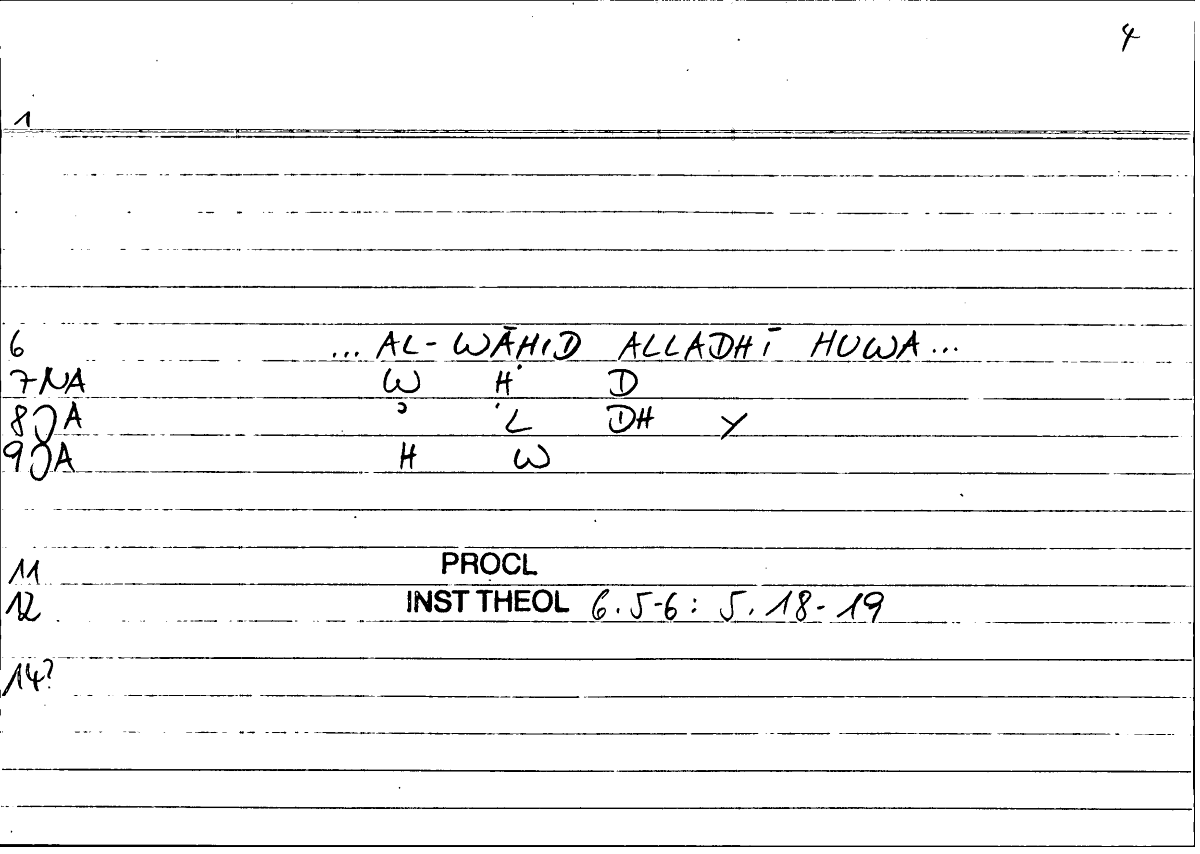 4
1
6 ... AL-WĀHID ALLADHĪ HUWA ...
7 NA W Ḥ D
8 JA ʾ L DH Y
9 JA H W
11 PROCL
12 INST THEOL 6.5-6: 5.18-19
14?